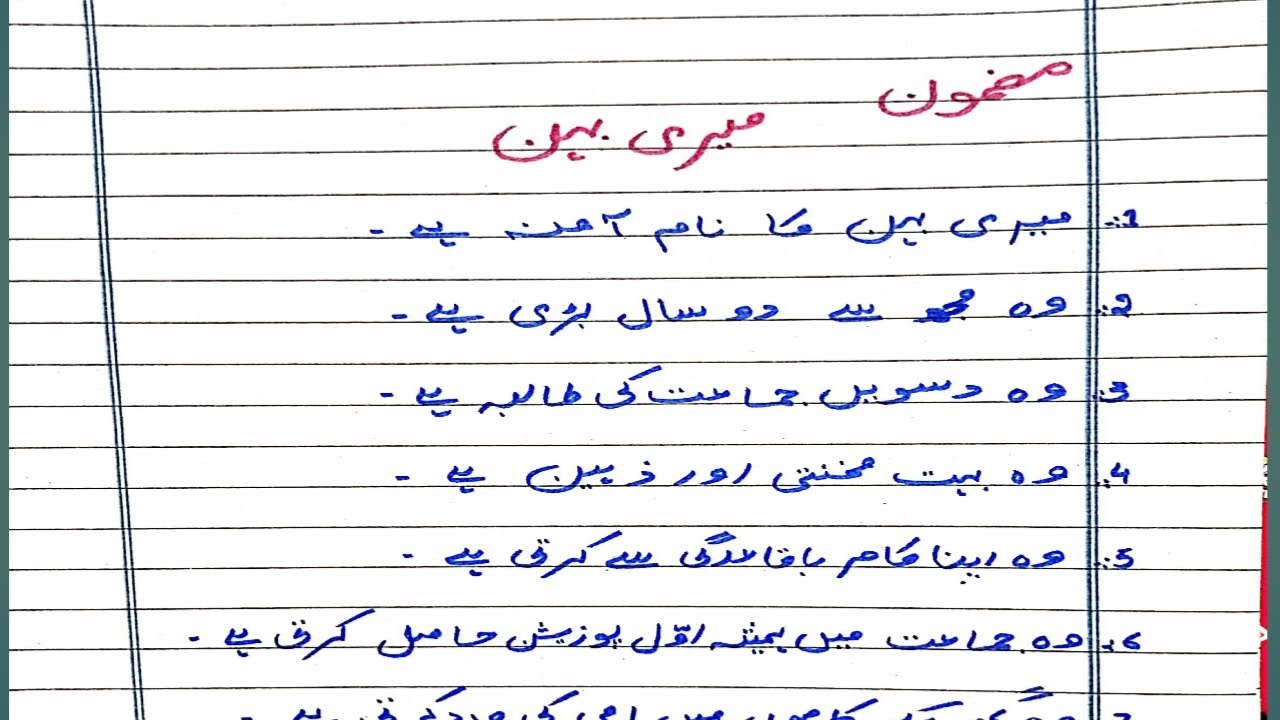 مضمون
میری بہن
1. میری بہن کا نام آمنہ ہے۔
2. وہ مجھ سے دو سال بڑی ہے۔
3. وہ دسویں جماعت کی طالبہ ہے۔
4. وہ بہت محنتی اور ذہین ہے۔
5. وہ اپنا کام باقاعدگی سے کرتی ہے۔
6. وہ جماعت میں ہمیشہ اوّل پوزیشن حاصل کرتی ہے۔
7. وہ گھر کے کاموں میں امی کی مدد کرتی ہے۔